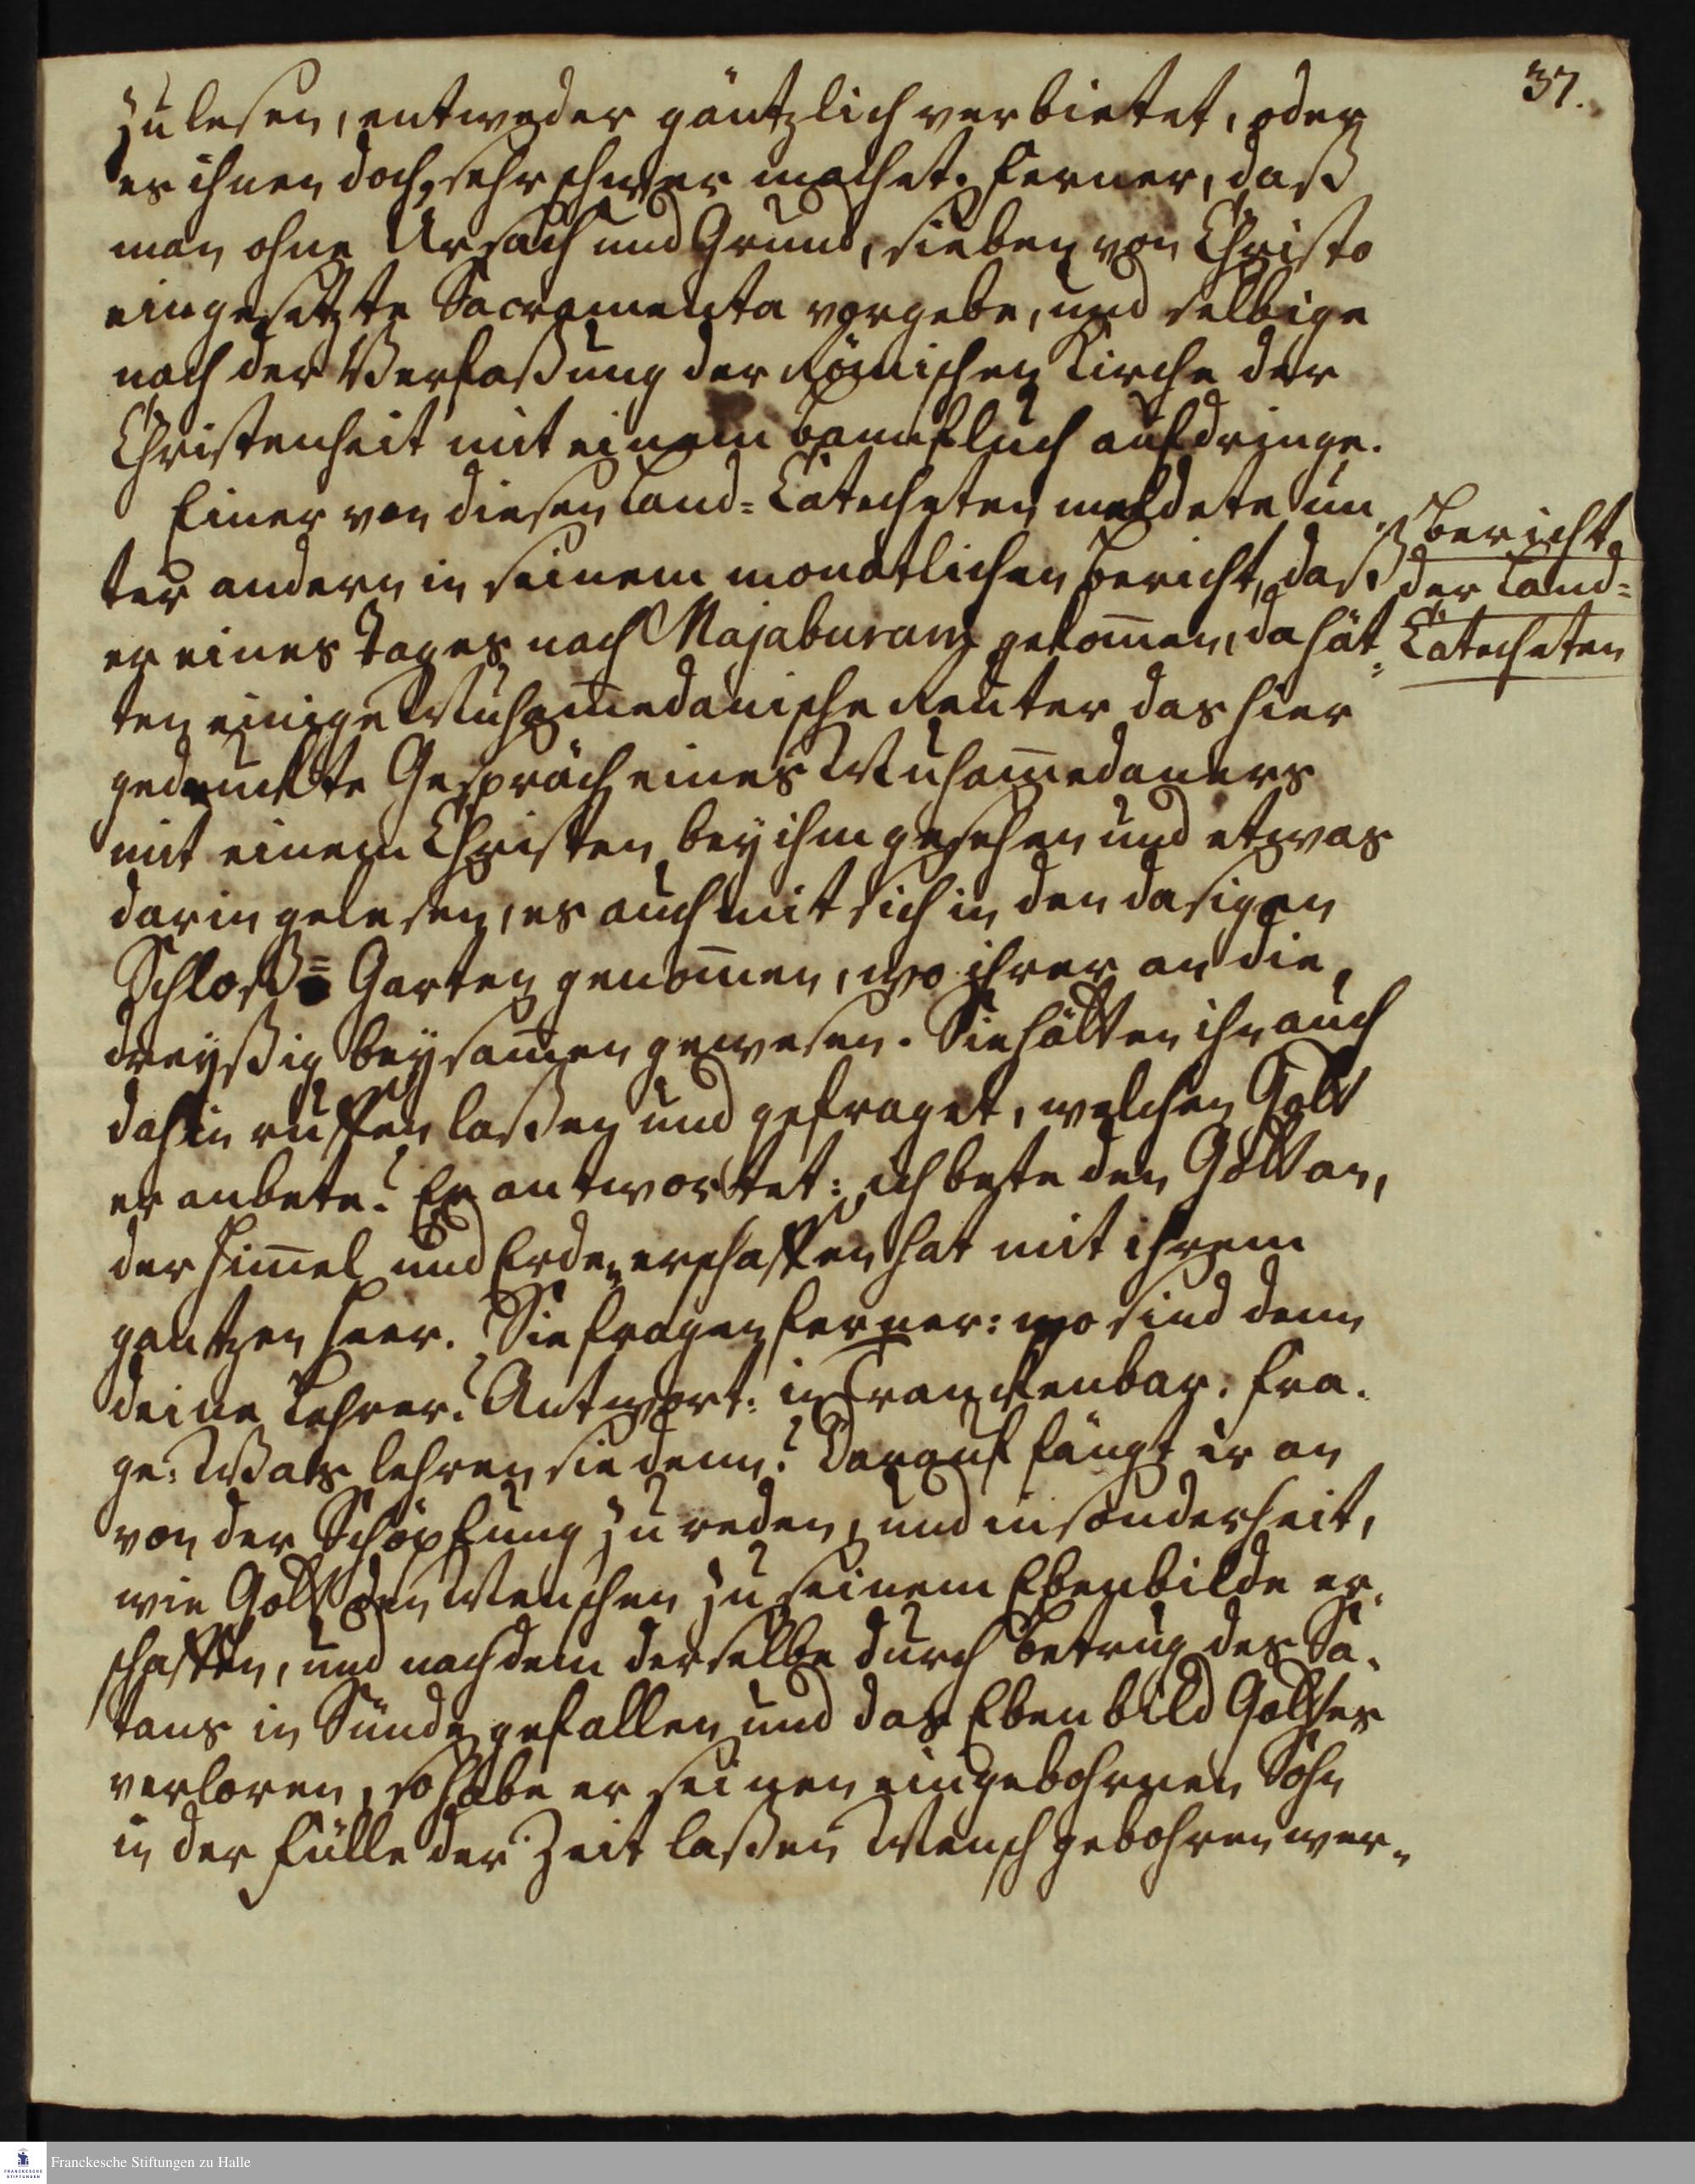 37.
zu lesen, entweder gäntzlich verbietet, oder
es ihnen doch sehr schwer machet. Ferner, daß
man ohne Ursach und Grund, sieben von Christo
eingesetzte Sacramenta vorgebe, und selbige
nach der Verfaßung der Römischen Kirche der
Christenheit mit einem bannfluch aufdringe.
Einer von diesen Land-Catecheten meldete un-
ter andern in seinem monatlichen Bericht, daß
er eines Tages nach Majaburam gekom̅en, da hät-
ten einige Muham̅edanische Reuter das hier
gedruckte Gespräch eines Muham̅edaners
mit einem Christen bey ihm gesehen und etwas
darin gelesen, es auch mit sich in den dasigen
Schloß-Garten genom̅en, wo ihrer an die
dreyßig beysam̅en gewesen. Sie hätten ihn auch
dahin ruffen laßen und gefraget, welchen Gott
er anbete? Er antwortet: ich bete den Gott an,
der Him̅el und Erden erschaffen hat mit ihrem
gantzen Heer. Sie fragen ferner: wo sind denn
deine Lehrer? Antwort: in Tranckenbar. Fra-
ge: Was lehren sie denn? Darauf fängt er an
von der Schöpfung zu reden, und insonderheit,
wie Gott den Menschen zu seinem Ebenbilde er-
schaffen, und nachdem derselbe durch Betrug des Sa-
tans in Sünde gefallen und das Ebenbild Gottes
verloren, so habe er seinen eingebohrnen Sohn
in der Fülle der Zeit laßen Mensch gebohren wer-
Bericht
der Land-
Catecheten
Franckesche Stiftungen zu Halle
FRANCKESCHE
STIFTUNGEN